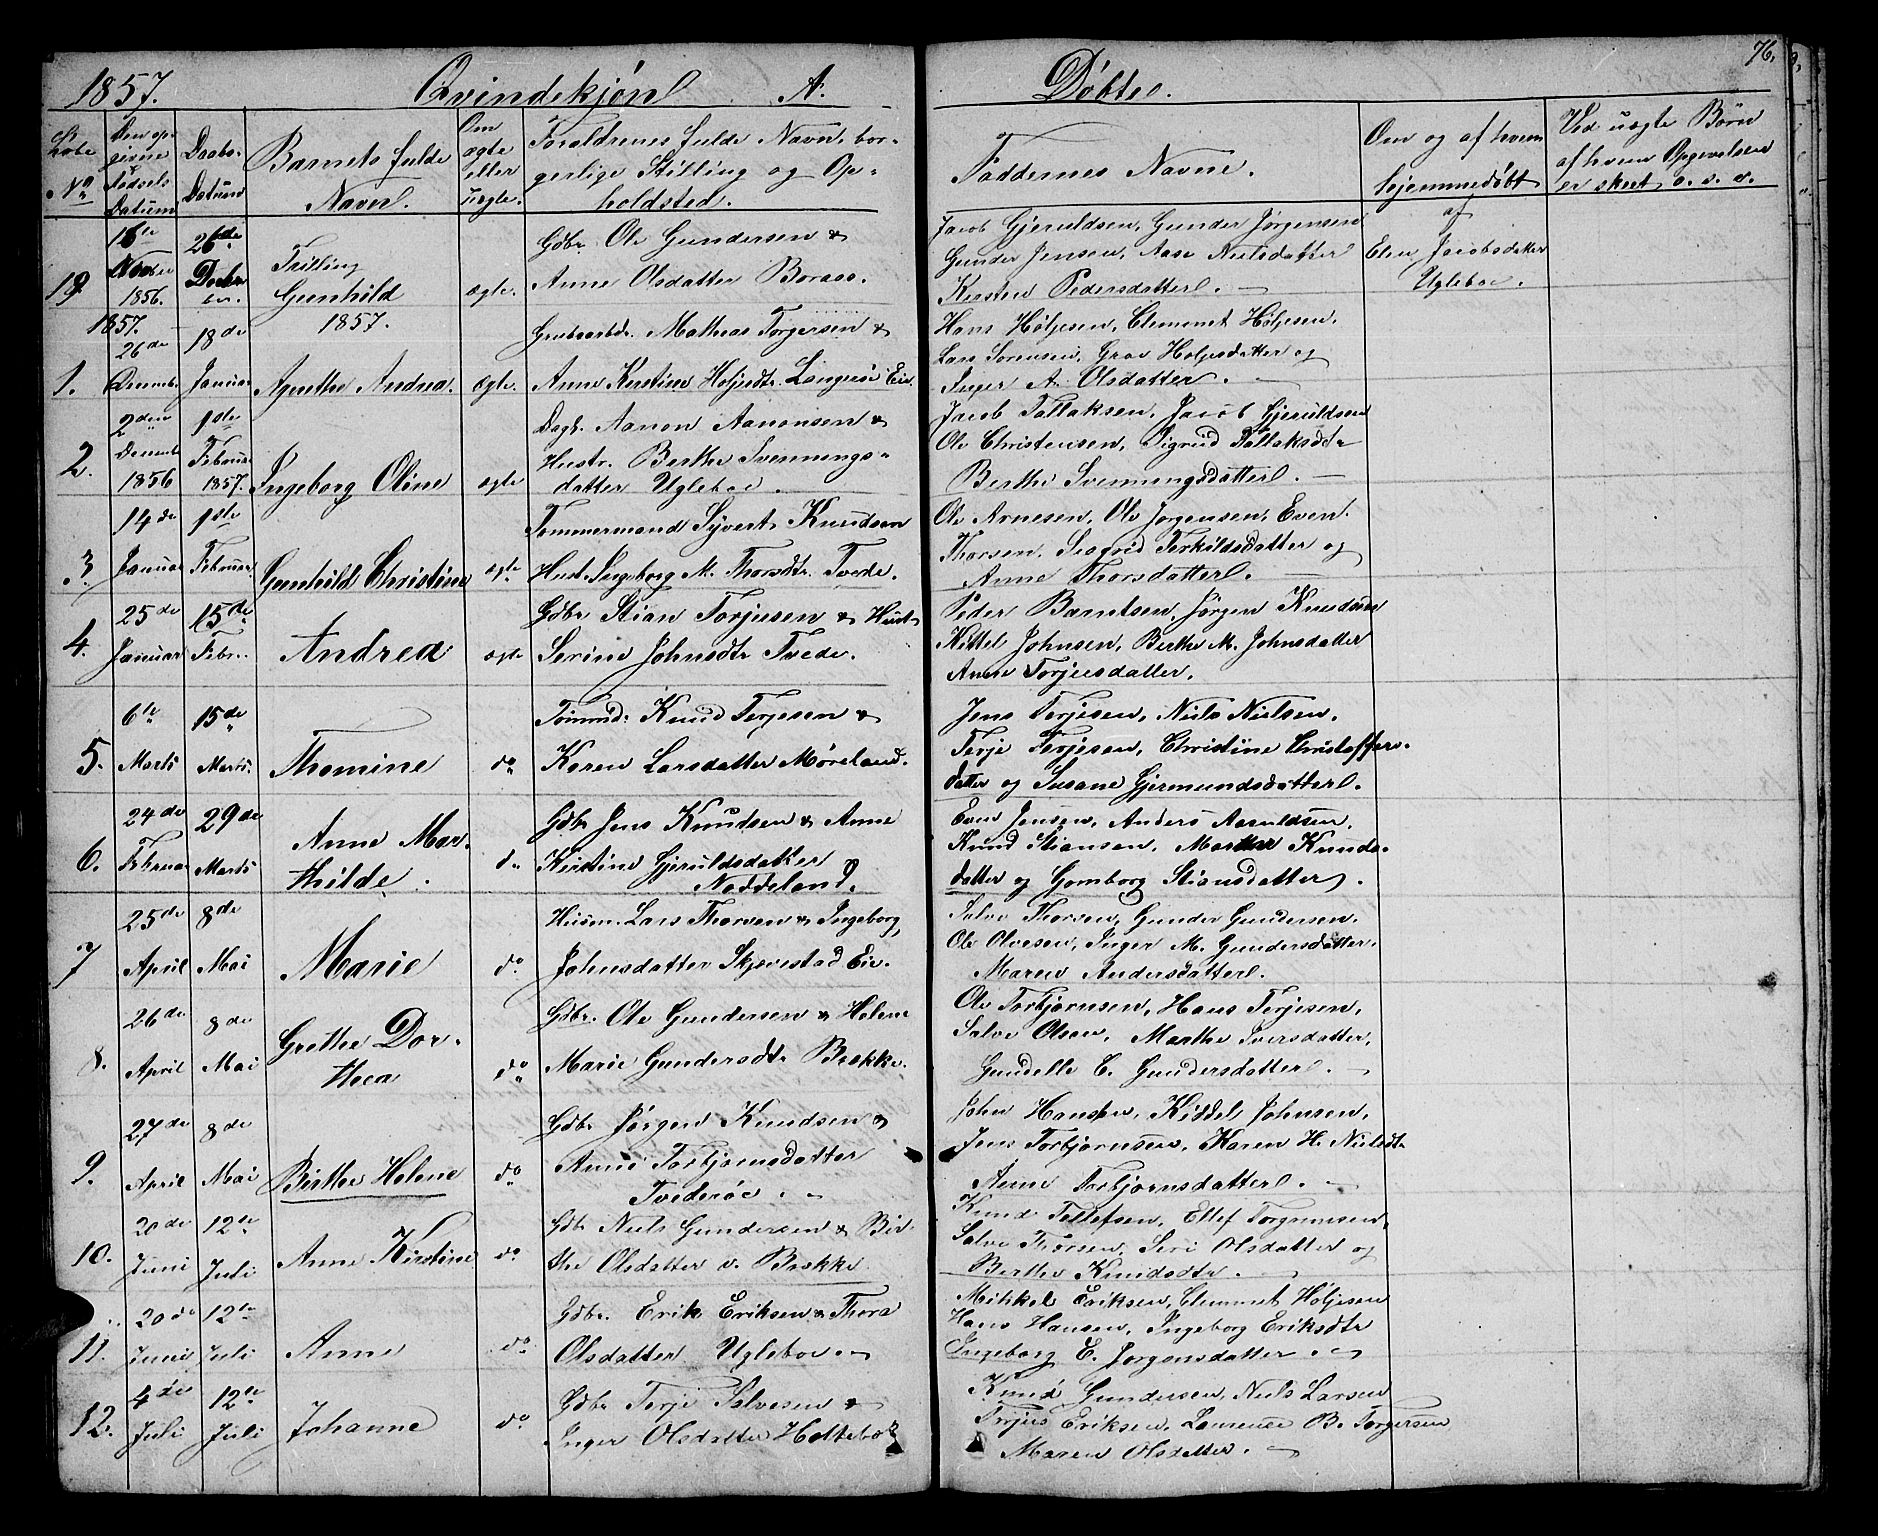 1857. Qvindekjøn A. Døbte. 76.
Løbe No
Den opgivne Fødsels Datum
Daabs-Datum
Barnets fulde Navn.
Om ægte eller uægte.
Forældrenes fulde Navn, borgerlige Stilling og Opholdsted.
Faddernes Navne.
Om og af hvem hjemmedøbt
Ved uægte Børn af hvem Opgivelsen er skeet o. s. v.
19. 16de Novber 1856. 26de Decbr Trilling Gunhild ægte.
Gdbr. Ole Gundersen &
Anne Olsdatter Boraas.
Jacob Gjeruldsen, Gunder Jørgensen
Gunder Jensen, Aase Nielsdatter
Kirsten Pedersdatter.
af Elen Jacobsdatter Ugleboe.
1857. 1857.
1. 26de Decemb. 18de Januar Agnethe Andrea. ægte.
Grubearbdr. Mathias Torgersen &
Anne Kirstine Holjesdtr. Langsæ Eie.
Hans Høljesen, Clemmet Høljesen,
Lars Sørensen, Groe Holjesdatter og
Inger A. Olsdatter.
2. 2den Decemb. 1856 1ste Februar 1857. Ingeborg Oline ægte
Dagl. Aanon Aanonsen &
Hustr. Berthe Svennings-
datter Ugleboe.
Jacob Tallaksen, Jacob Gjeruldsen
Ole Christensen, Sigrid Tallaksdtr
Berthe Svenningsdatter.
3. 14de Januar 1ste Februar Gunhild Christine ægte
Tømmermand Syvert Knudsen
Hust. Ingeborg M. Thorsdtr. Tvede.
Ole Arnesen, Ole Jørgensen, Even
Thorsen, Siegrid Terkildsdatter og
Anne Thorsdatter.
4. 25de Januar 15de Febr. Andrea ægte
Gdbr Stian Torjusen & Hust
Serine Johnsdtr Tvede.
Peder Berntsen, Jørgen Knudsen
Kittel Johnsen, Berthe M. Johnsdatter
Anne Torjusdatter.
5. 6te Marts 15de Marts. Thomine do
Tømmd. Knud Terjesen &
Karen Larsdatter Møreland.
Jens Terjesen, Niels Nielsen,
Terje Terjesen, Christine Christoffers-
datter og Susane Gjermundsdatter.
6. 24de Februar 29de Marts Anne Marthilde. do
Gdbr Jens Knudsen & Anne
Kirstine Gjeruldsdatter
Neddeland.
Even Jensen, Anders Aasuldsen,
Knud Stiansen, Marthe Knuds-
datter og Gomborg Stiansdatter.
7 25de April 8de Mai Marie do
Husm. Lars Thorsen & Ingeborg
Johnsdatter Skjævestad Eie.
Salve Thorsen, Gunder Gundersen.
Ole Olvesen, Inger M. Gundersdatter.
Maren Andersdatter.
8. 26de April 8de Mai Grethe Dorthea do
Gdbr. Ole Gundersen & Helene
Marie Gundersdtr Brække.
Ole Torbjørnsen, Hans Terjesen,
Salve Olsen, Marthe Iversdatter,
Gundelle C. Gundersdatter.
9. 27de April 8de Mai Birthe Helene do
Gdbr Jørgen Knudsen &
Anne Torbjørnsdatter
Tvederøe.
John Hansen, Kiddel Johnsen,
Jens Torbjørnsen, Karen H. Nielsdtr
Anne Torbjørnsdatter.
10. 20de Juni 12te Juli Anne Kirstine do
Gdbr Niels Gundersen & Bir-
the Olsdatter v. Brække.
Knud Tellefsen, Ellef Torgrimsen,
Salve Thorsen, Seri Olsdatter og
Berthe Knudsdtr.
11. 20de Juni 12te Juli Anne do
Gdbr. Erik Eriksen & Thora
Olsdatter Ugleboe.
Mikkel Eriksen, Clemmet Høljesen
Hans Hansen, Ingeborg Eriksdtr
Ingeborg E. Jørgensdatter.
12. 4de Juli 12te Juli Johanne do
Gdbr Terje Salvesen &
Inger Olsdatter Holtebo
Knud Gundersen, Niels Larsen
Torjus Eriksen, Laurense B. Torgersen
Maren Olsdatter.